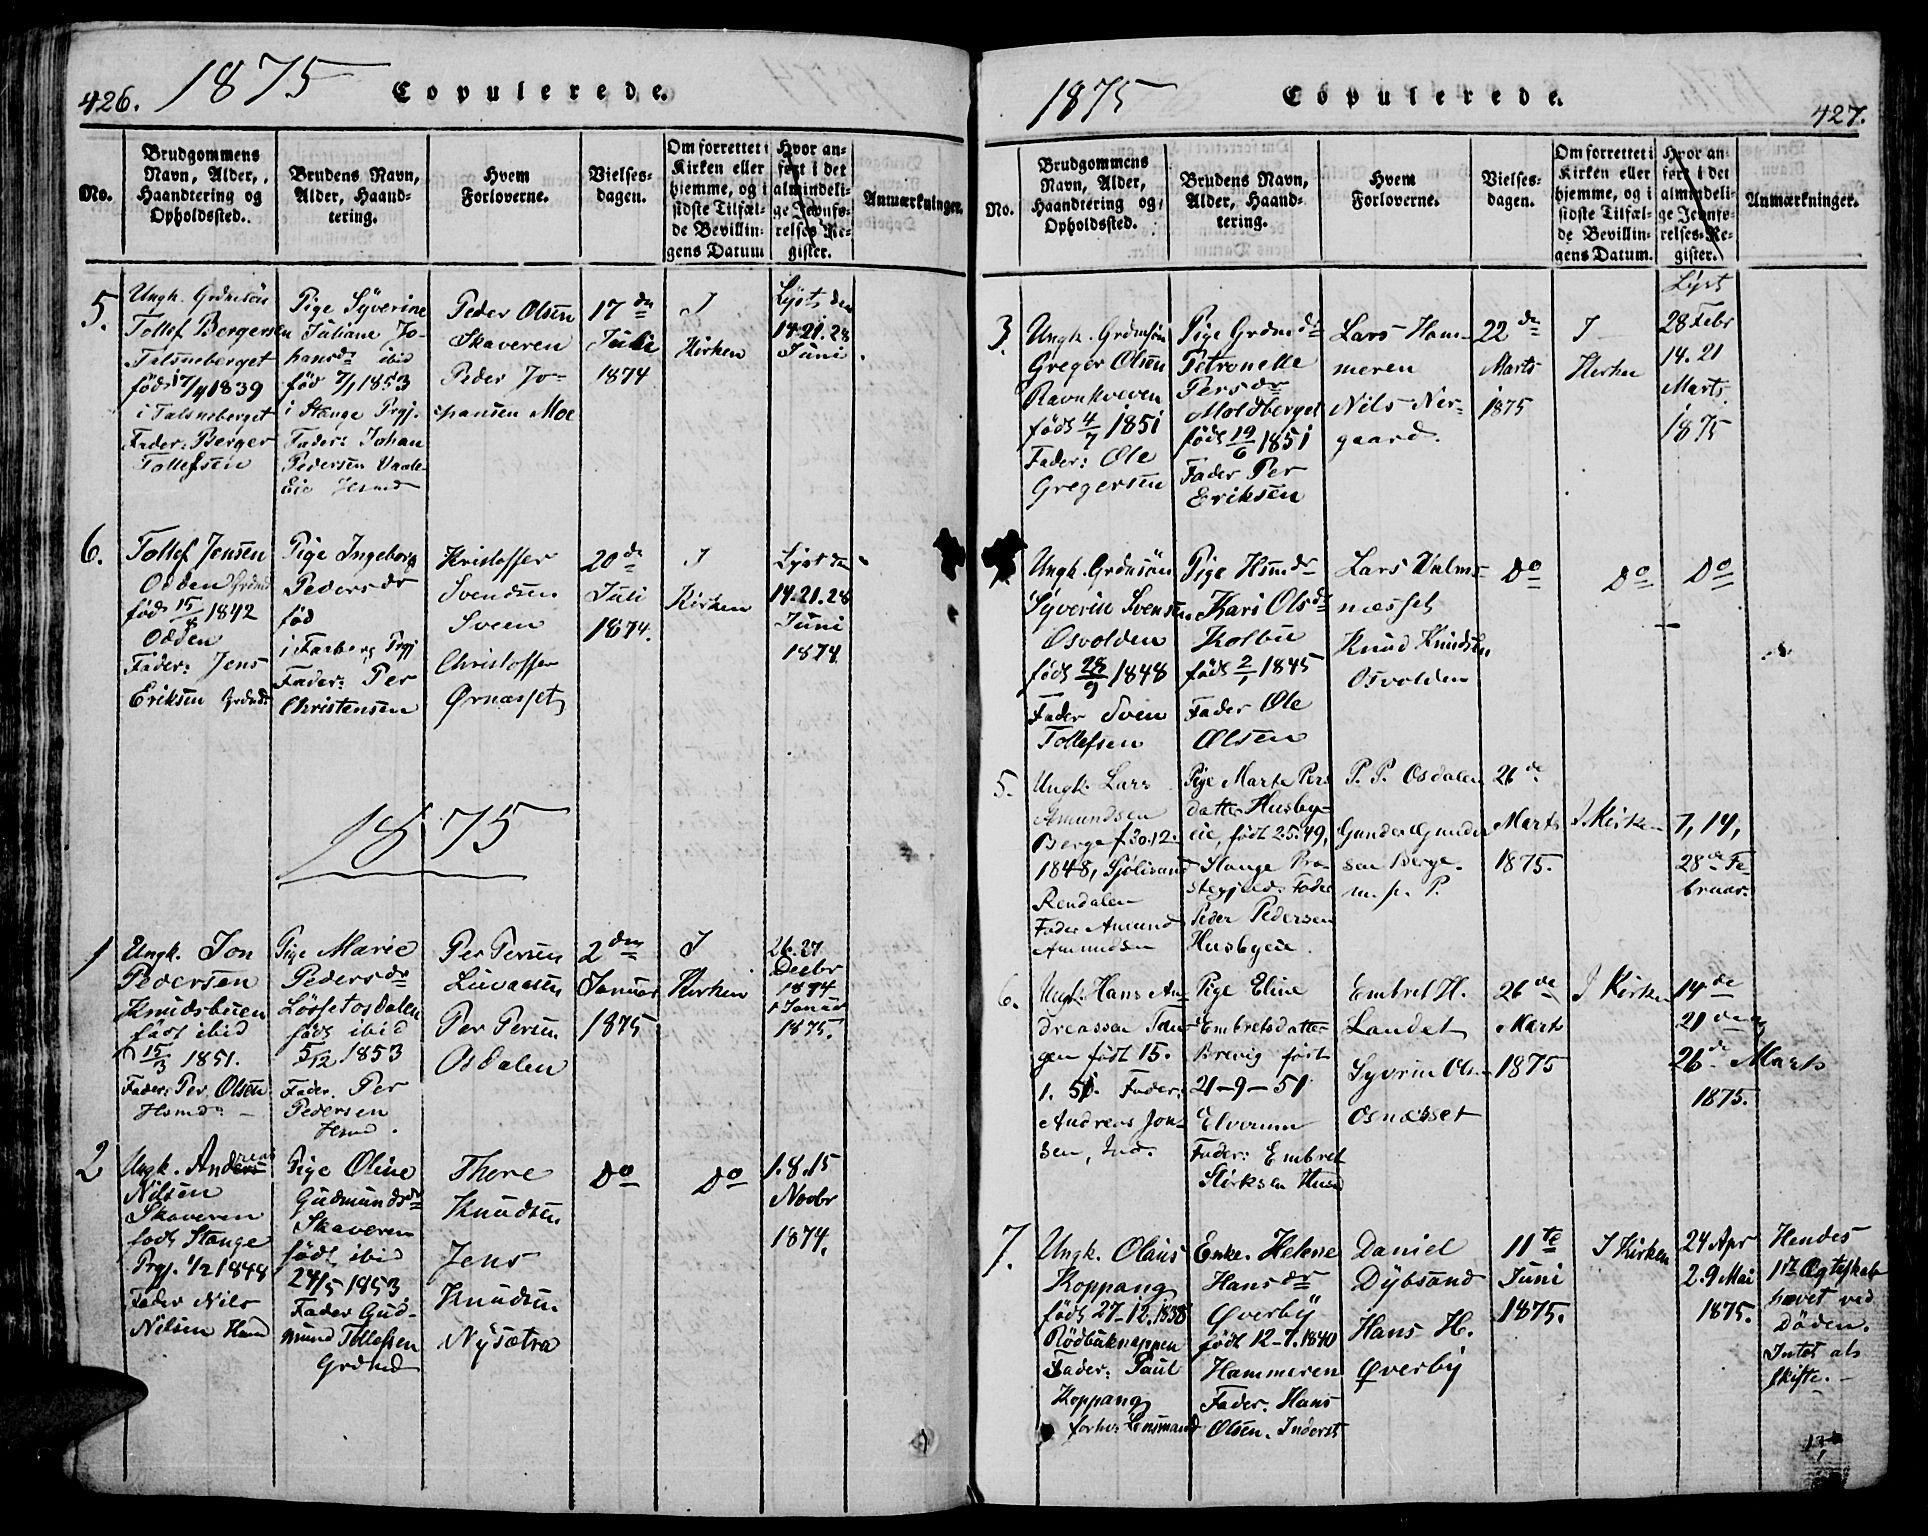 426. 1875 Copulerede.
No.
Brudgommens
Navn, Alder,
Haandtering og
Opholdssted.
Brudens Navn,
Alder, Haand-
tering.
Hvem
Forloverne.
Vielses-
dagen.
Om forrettet i
Kirken eller
hjemme, og i
sidste Tilfæl-
de Bevillin-
gens Datum
Hvor an-
ført i det
almindeli-
ge Jevnfø-
relses-Re-
gister.
Anmærkninger.
5.
Ungk. Grdmsön
Tollef Bergersen
Talsneberget
föds 17/9 1839
i Talsneberget
Fader: Berger
Tollefsen
Pige Syverine
Juliane Jo-
hansdr ibid
föd 7/1 1853
i Stange Prgj.
Fader: Johan
Pedersen
Eie Hsmd
Peder Olsen
Skaveren
Peder Jo-
hansen Moe
17de
Juli
1874
I
Kirken
Lyst den
14.21.28
Juni
6.
Tollef Jensen
Odden Grdmd
föds 15/8 1842
Odden
Fader: Jens
Eriksen Grdmd
Pige Ingeborg
Pedersdr
föd
i Faaberg Prgj
Fader: Per
Christensen
Kristoffer
Svendsen
Sveen
Christoffer
Örnæsset
20de
Juli
1874.
I
Kirken
Lyst den
14.21.28
Juni
1874
1875
1
Ungk. Jon
Pedersen
Knudsbuen
födt ibid
15/3 1851.
Fader: Per Olsen
Hsmd.
Pige Marie
Pedersdr
Lössetosdalen
föds ibid
5/12 1853
Fader. Per
Pedersen
Hsmd.
Per Persen
Lövaasen
Per Persen
Osdalen
2den
Januar
1875
I
Kirken
26.27
Decbr
1874
1 Januar
1875.
2
Ungk. Andreas
Nilsen
Skaveren
föds Stange
Prgj. 1/2 1848
Fader Nils
Nilsen Hsmd
Pige Oline
Gudmundsdr
Skaveren
födt ibid
24/5 1853
Fader Gud-
mund Tollefsen
Grdmd
Thore
Knudsen
Jens
Knudsen
Nysætra
Do
Do
1.8.15
Novbr
1874.
1875 Copulerede. 427.
No.
Brudgommens
Navn, Alder,
Haandtering og
Opholdssted.
Brudens Navn,
Alder, Haand-
tering.
Hvem
Forloverne.
Vielses-
dagen.
Om forrettet i
Kirken eller
hjemme, og i
sidste Tilfæl-
de Bevillin-
gens Datum.
Hvor an-
ført i det
almindeli-
ge Jevnfø-
relses-Re-
gister.
Anmærkninger.
3.
Ungk. Grdmsön
Greger Olsen
Ravnkveven
föds 4/7 1851
Fader: Ole
Gregersen
Pige Grdmdr
Petronelle
Persdr
Moldberget
föds 19/6 1851
Fader Per
Eriksen
Lars Ham-
meren
Nils Ner-
gaard.
22de
Marts
1875
I
Kirken
Lyst
28 Febr
14.21
Marts
1875
Ungk. Grdmsön
Syverin Svensen
Osvolden
föds 28/9 1848
Fader Sven
Tollefsen
Pige Hsmdr
Kari Olsdr
Kolbu
föds 2/1 1845
Fader Ole
Olsen
Lars Valms-
næsset
Knud Knudsen
Osvolden
Do
Do
Do
5.
Ungk. Lars
Amundsen
Berge f. 30.12.
1848, Sjölisand
Rendalen
Fader Amund
Amundsen
Pige Marte Pers
datter Husby-
eie, födt 2.5.49,
Stange Præ-
stegjeld. Fader
Peder Pedersen
Husbyeie.
P. P. Osdalen
Gunder Gunder
sen Berge.
m. p. P.
26de
Marts
1875.
I Kirken
7, 14,
28de Fe
bruar.
6.
Ungk. Hans An-
dreassen Tan-
gen födt 15.
1. 51. Fader:
Andreas Jon-
sen, Ind.
Pige Eline
Embretsdatter
Brevig födt
21-9-51
Elverum
Fader: Embret
Eriksen Husmd
Embret H.
Landet
Syvrin Olsen
Osnæsset
26de
Marts
1875
I Kirken
14de
21de og
26de Marts
1875.
7.
Ungk. Olaus
Koppang
föds 27-12.1838
Rödbaknappen
Fader: Paul
Koppang
forhv. Lensmand
Enke. Helene
Hansdr
Øverby
födt 12-7.1840
Hammeren
Fader. Hans
Olsen. Inderst
Daniel
Dybsand
Hans H.
Øverby
11te
Juni
1875.
I Kirken
24 Apr
2.9 Mai
1875.
Hendes
1ste Ægteskab
hævet ved
Döden.
Intet at
skifte.